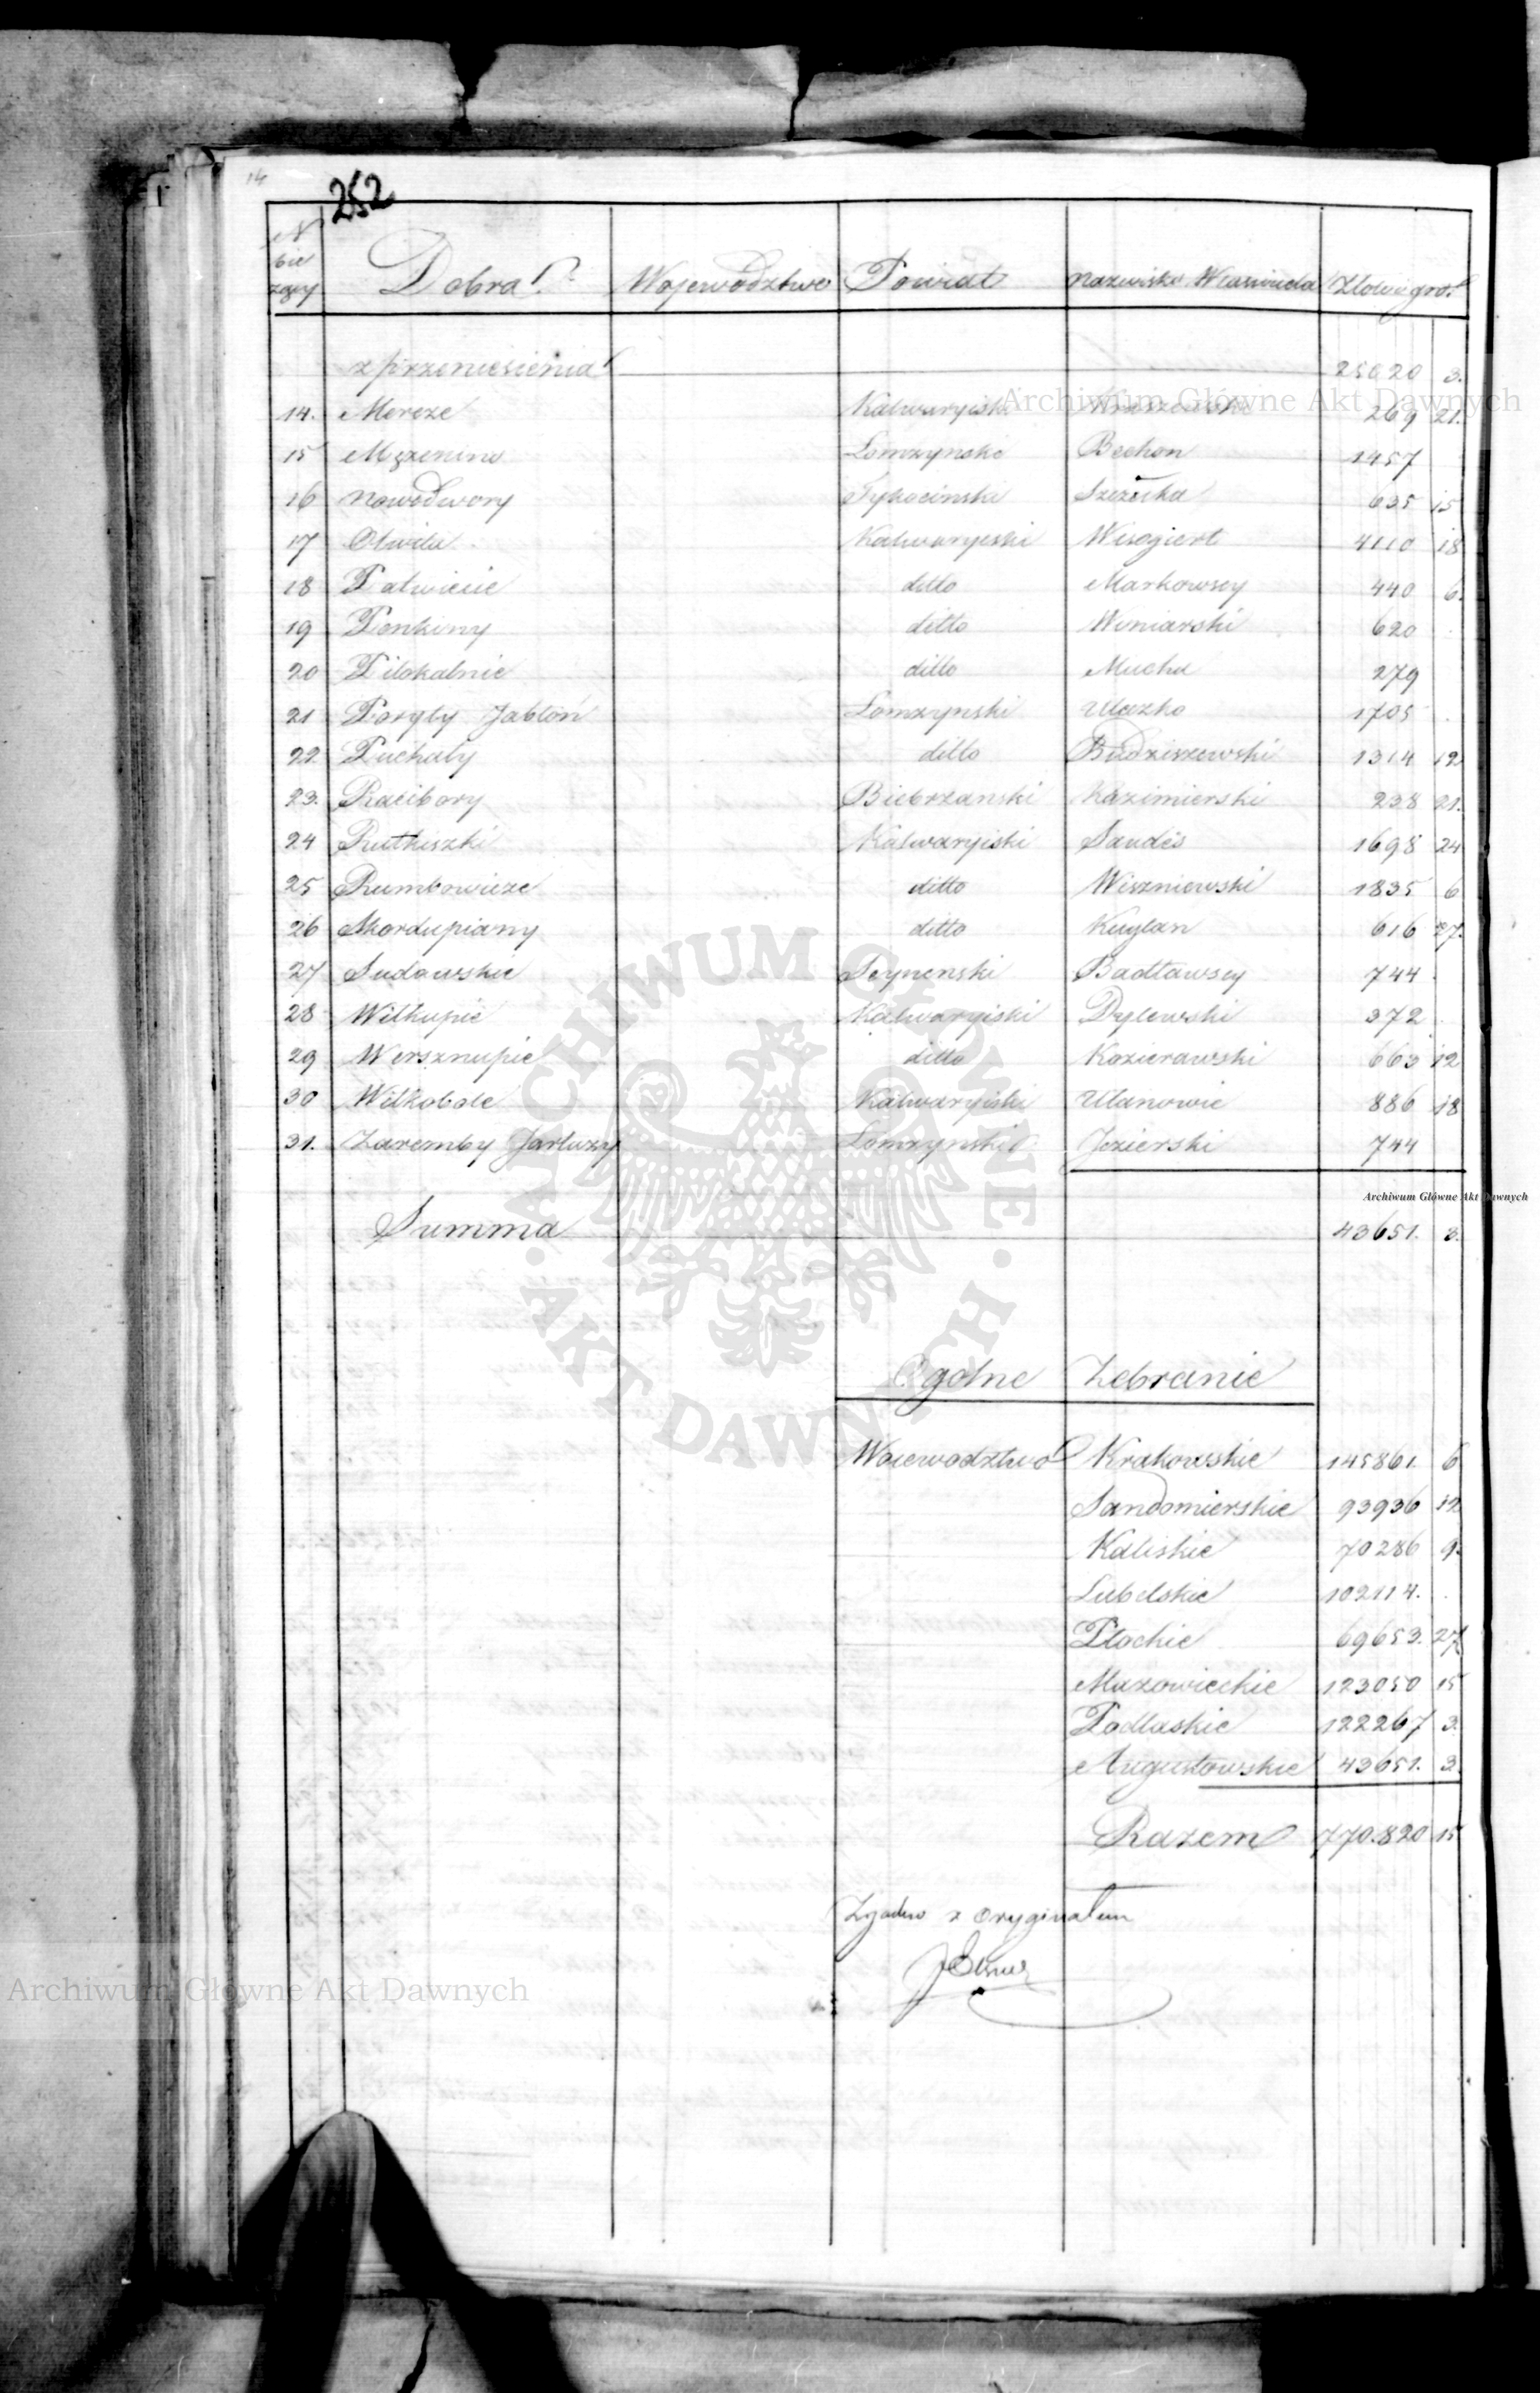 14
252
N
bie
zący
Dobra Województwo Powiat Nazwisko Własciciela Złote gro.
z przeniesienia 25020 3.
14. Mereze Kalwaryiski 269 21.
15 Mężenino Łomzynski Bechon 1457
16 Nowodwory Tykocinski Szczuka 635 15
17 Olwita Kalwaryiski Wisogiert 4110 18
18 ditto Markowscy 440 6.
19 Penkiny ditto Winiarski 620
20 Pilokalnie ditto Mucha 279
21 Poryty Jabłoń Łomzynski 1705
22 Puchały ditto Budziszewski 1314 12
23. Racibory Biebrzanski Kazimierski 238 21.
24 Rutkiszki Kalwaryiski Saudes 1698 24
25 Rumbowicze ditto Wiszniewski 1835 6
26 Skordupiany ditto Kuylan 616 27.
27 Sudawskie Seynenski Badtawscy 744
28 Wilkupie Kalwaryiski Dylewski 372
29 Wersznupie ditto Kozierawski 663 12
30 Wilkobole Kalwaryiski Ulanowie 886 18
31. Zaremby Jartuzy Łomzynski Jezierski 744
Summa 43651. 3.
Ogolne Zebranie
Woiewodztwo Krakowskie 145861. 6
Sandomierskie 93936 12
Kaliskie 70286 9.
Lubelskie 102114.
Płockie 69653. 27
Mazowieckie 123050 15
Podlaskie 122267 3.
Augustowskie 43651. 3.
Razem 770.820 15
Zgodno z oryginałem
Archiwum Główne Akt Dawnych
Archiwum Główne Akt Dawnych
Archiwum Główne Akt Dawnych
ARCHIWUM GŁÓWNE
AKT DAWNYCH